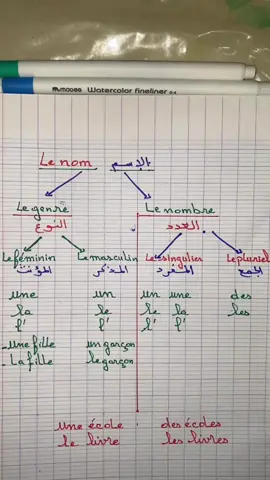 mumoaes Watercolor fineliner 0.4
Le nom الإسم
Le genre Le nombre
النوع العدد
Le féminin Le masculin Le singulier Le pluriel
المؤنث المذكر المفرد الجمع
une un un une des
la le le la les
l' l' l' l'
- une fille un garçon
- La fille le garçon
une école des écoles
le livre les livres